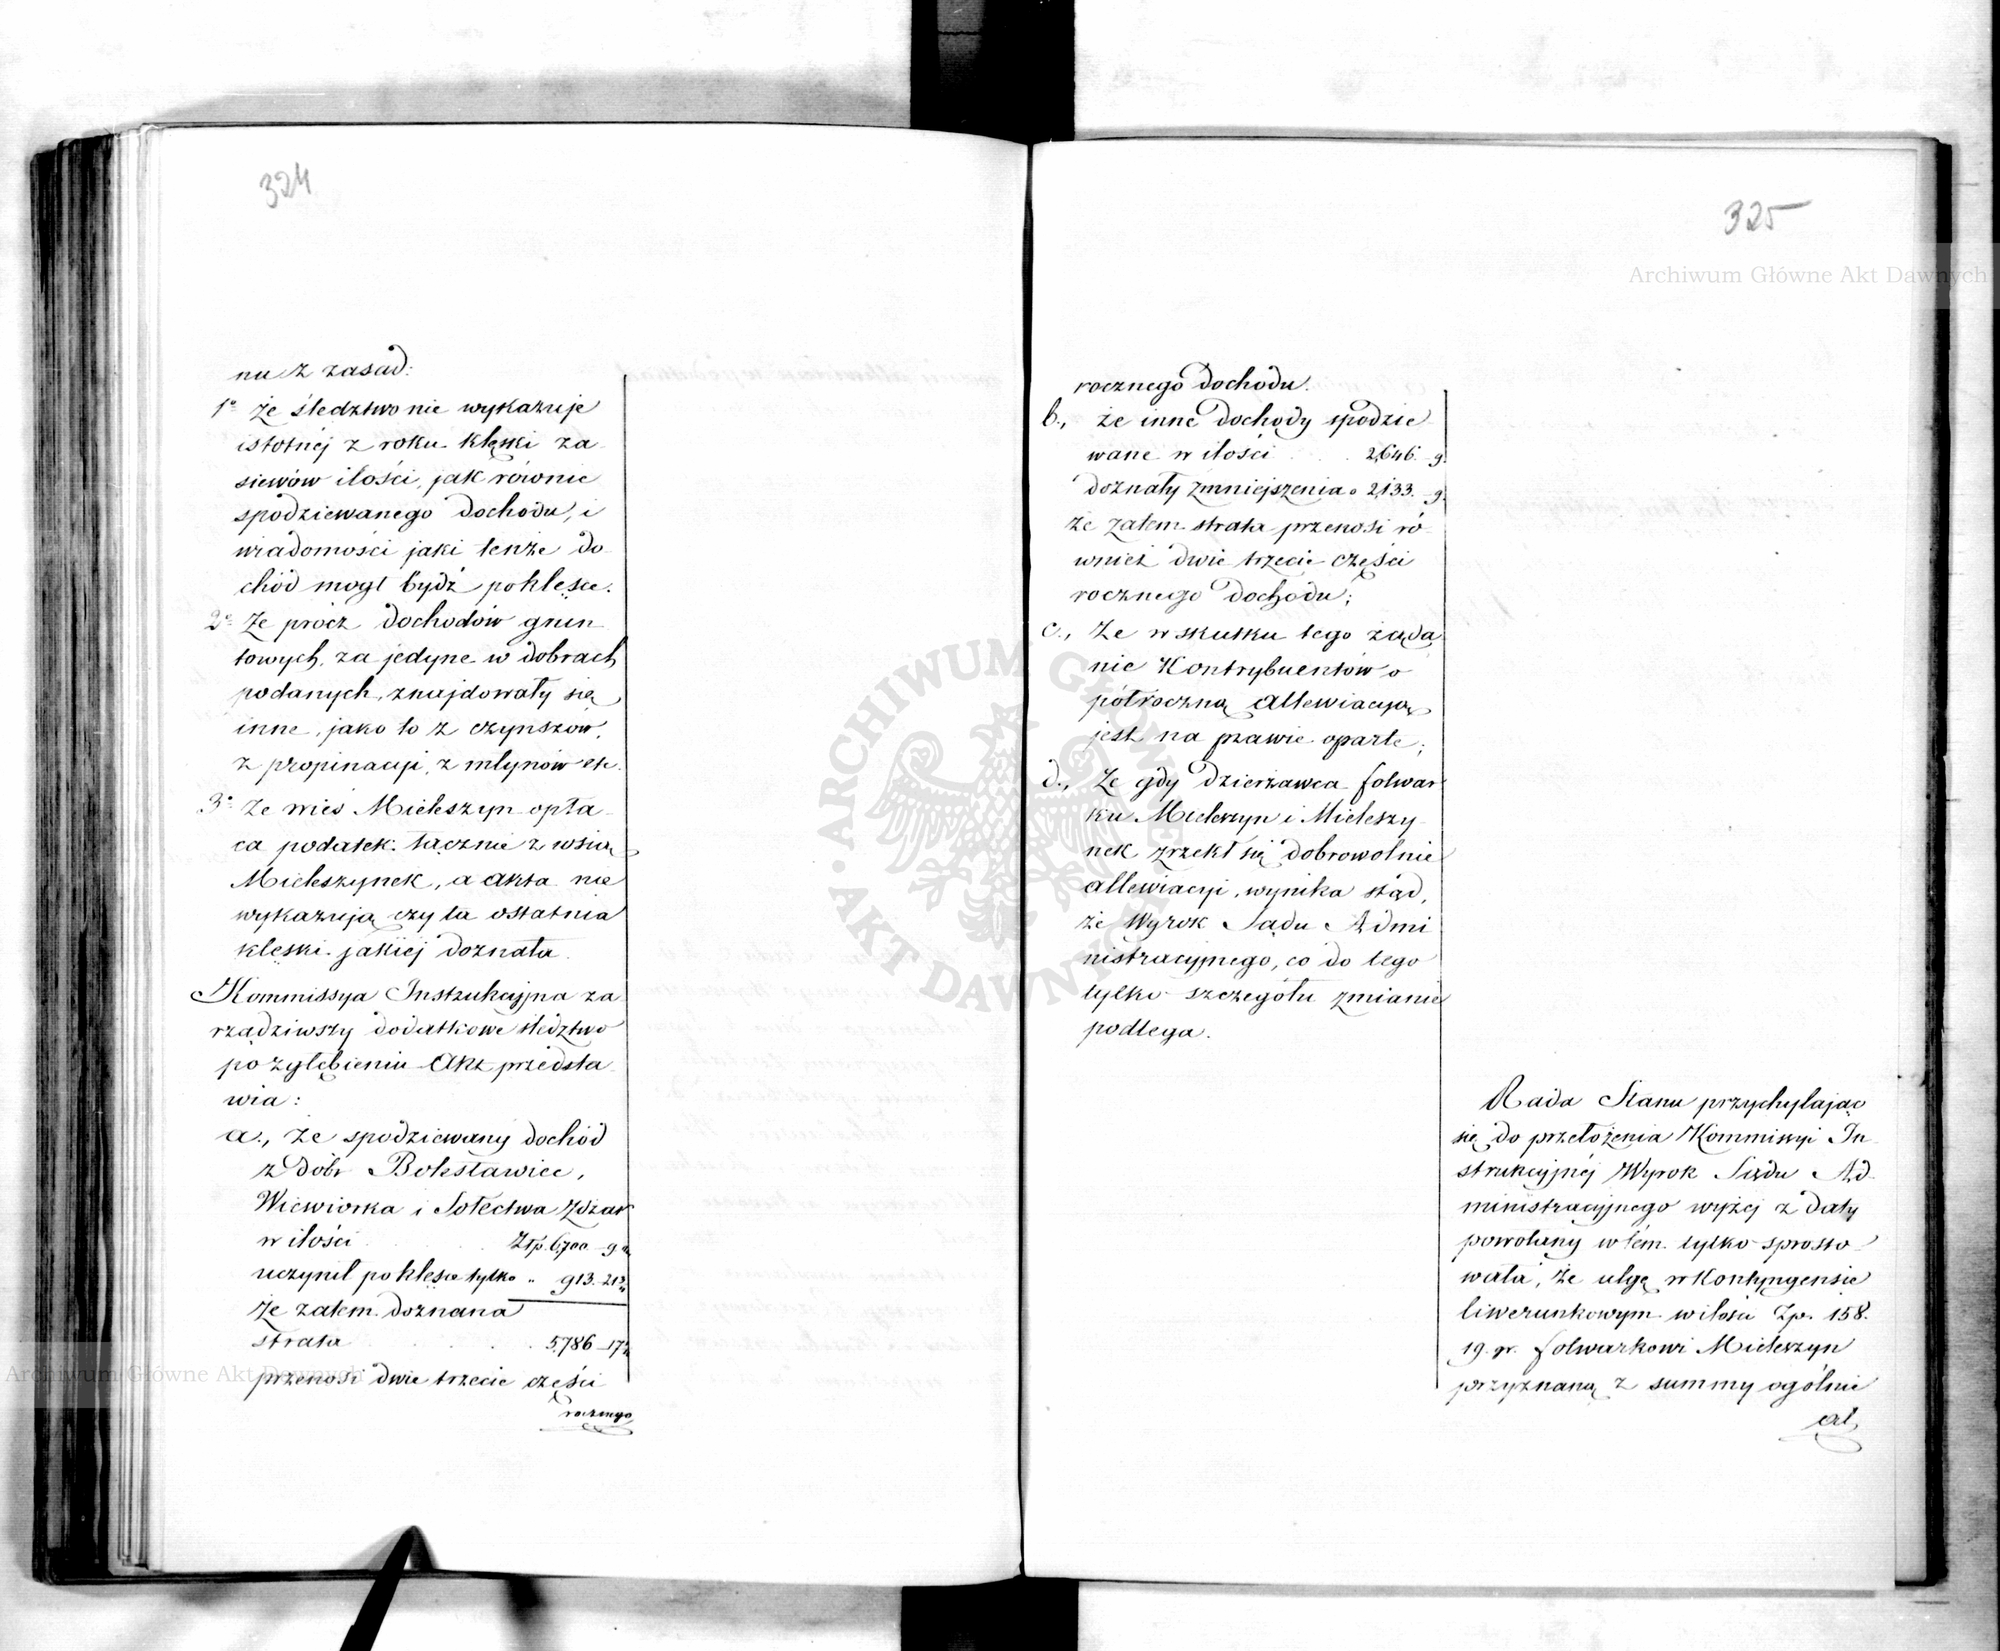 324
nu z zasad:
1o że śledztwo nie wykazuje
istotnéj z roku klęski za
siewów ilości, jak równie
spodziewanego dochodu, i
wiadomości jaki tenże do
chód mogł bydź po klęsce.
2o Że prócz dochodów grun
towych, za jedyne w dobrach
podanych, znajdowały się
inne, jako to z czynszów,
z propinacyi, z młynów etc.
3o Że wieś Mieleszyn opła
ca podatek łącznie z wsią
Mieleszynek, a akta nie
wykazują czy ta ostatnia
klęski jakiej doznała.
Kommissya Instrukcyjna za
rządziwszy dodatkowe śledztwo
po zgłębieniu Akt przedsta
wia:
a., że spodziewany dochód
z dóbr Bolesławiec,
Wiewiorka i Sołectwa Zdżar
w ilości Złp. 6,700 g
uczynił po klęsce tylko " 913. 21
Że zatem doznana
strata 5,786 17
przenosi dwie trzecie części
rocznego
325
Archiwum Główne Akt Dawnych
rocznego dochodu.
b., że inne dochody spodzie
wane w ilości 2,646. g.
doznały zmniejszenia o 2,133. g.
że zatem strata przenosi ró
wnież dwie trzecie części
rocznego dochodu;
c., Że w skutku tego żąda
nie Kontrybuentów o
półroczną allewiacyą
jest na prawie oparte;
d., Że gdy dzierżawca folwar
ku Mieleszyn i Mieleszy
nek zrzekł się dobrowolnie
allewiacyi, wynika stąd,
że Wyrok Sądu Admi
nistracyjnego, co do tego
tylko szczegółu zmianie
podlega.
Rada Stanu przychylając
się do przełożenia Kommissyi In
strukcyjnéj Wyrok Sądu Ad
ministracyjnego wyżej z daty
powołany w tém tylko sprosto
wała, że ulgę w Kontyngensie
liwerunkowym w ilości Zp. 158.
19. gr. folwarkowi Mieleszyn
przyznaną z summy ogólnie
al
ARCHIWUM GŁÓWNE AKT DAWNYCH
Archiwum Główne Akt Dawnych